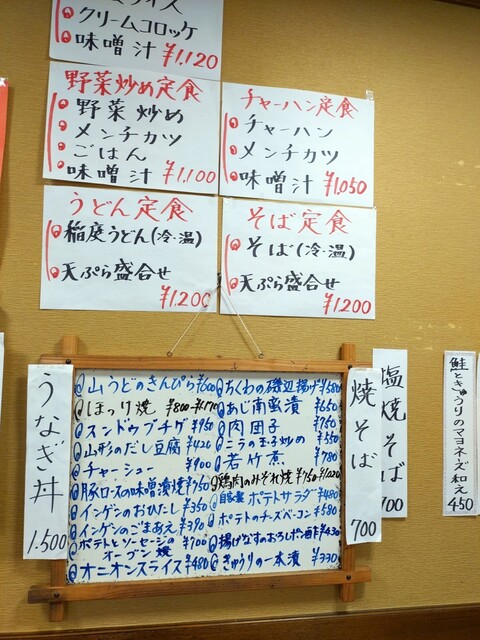 ライス
クリームコロッケ
味噌汁 ¥1,120
野菜炒め定食
野菜炒め
メンチカツ
ごはん
味噌汁 ¥1,100
チャーハン定食
チャーハン
メンチカツ
味噌汁 ¥1,050
うどん定食
稲庭うどん(冷・温)
天ぷら盛合せ
¥1,200
そば定食
そば(冷・温)
天ぷら盛合せ
¥1,200
うなぎ丼
1,500
山うどのきんぴら ¥600
ほっけ焼 ¥800
スンドゥブチゲ ¥950
山形のだし豆腐 ¥420
チャーシュー ¥900
豚ロースの味噌漬焼 ¥750
インゲンのおひたし ¥350
インゲンのごまあえ ¥390
ポテトとソーセージの
オーブン焼 ¥700
オニオンスライス ¥480
ちくわの磯辺揚げ ¥580
あじ南蛮漬 ¥650
肉団子 ¥750
ニラの玉子炒め ¥550
若竹煮 ¥780
鶏肉のみぞれ焼 ¥750
自家製 ポテトサラダ ¥480
ポテトのチーズベーコン ¥580
揚げなすのおろしポン酢 ¥430
きゅうりの一本漬 ¥330
焼そば
700
塩焼そば
700
鮭ときゅうりのマヨネーズ和え
450